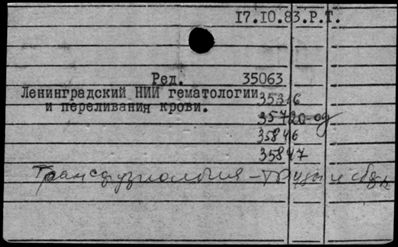 17.10.83.Р.Т.
Ред. 35063
Ленинградский НИИ гематологии 35316
и переливания крови.
35720-од
35846
35847
Трансфузиология –